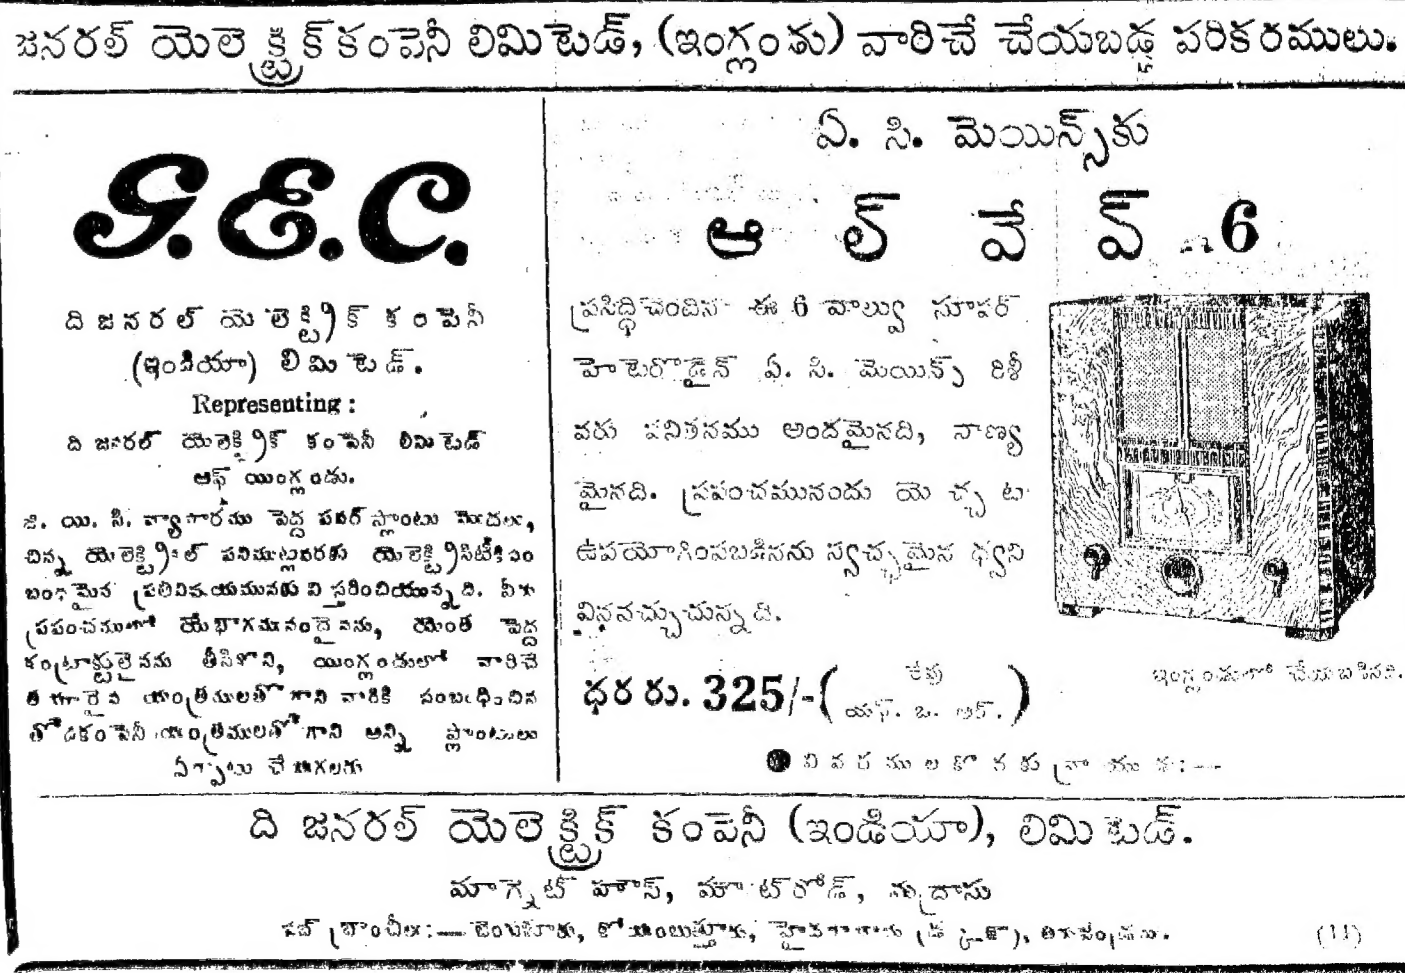 జనరల్ యెలెక్ట్రిక్ కంపెనీ లిమిటెడ్, (ఇంగ్లండు) వారిచే చేయబడ్డ పరికరములు.
G.E.C.
ది జనరల్ యెలెక్ట్రిక్ కంపెనీ
(ఇండియా) లిమిటెడ్.
Representing:
ది జనరల్ యెలెక్ట్రిక్ కంపెనీ లిమిటెడ్
ఆఫ్ యింగ్లండు.
జి. యి. సి. వ్యాపారము పెద్ద పవర్ ప్లాంటు మొదలు,
చిన్న యెలెక్ట్రికల్ పనిముట్లవరకు యెలెక్ట్రిసిటీకి
విస్తరించియున్నది.
ప్రపంచములో యేభాగమునందైనను, యెంత పెద్ద
కంట్రాక్టులైనను తీసికొని, యింగ్లండులో వారిచే
తయారైన యంత్రములతోగాని వారికి సంబంధించిన
తోడికంపెనీ యంత్రములతోగాని అన్ని ప్లాంటులు
యేర్పాటు చేయగలరు
ఏ. సి. మెయిన్స్‌కు
ఆల్ వేవ్ 6
ప్రసిద్ధిచెందిన ఈ 6 వాల్వు సూపర్
హెటెరొడైన్ ఏ. సి. మెయిన్స్ రిశీ
వరు పనితనము అందమైనది, నాణ్య
మైనది. ప్రపంచమునందు యెచ్చట
ఉపయోగింపబడినను స్వచ్ఛమైన ధ్వని
విననచ్చుచున్నది.
ధర రు. 325/- (
యఫ్. ఒ. ఆర్.)
ఇంగ్లండులో చేయబడినది.
వివరములకొరకు వ్రాయుడు:—
ది జనరల్ యెలెక్ట్రిక్ కంపెనీ (ఇండియా), లిమిటెడ్.
మాగ్నెట్ హౌస్, మౌంట్‌రోడ్, మద్రాసు
సబ్ బ్రాంచీలు:— బెంగుళూరు, కోయంబత్తూరు, హైదరాబాదు (డక్కన్), తిరువేండ్రము.
(11)